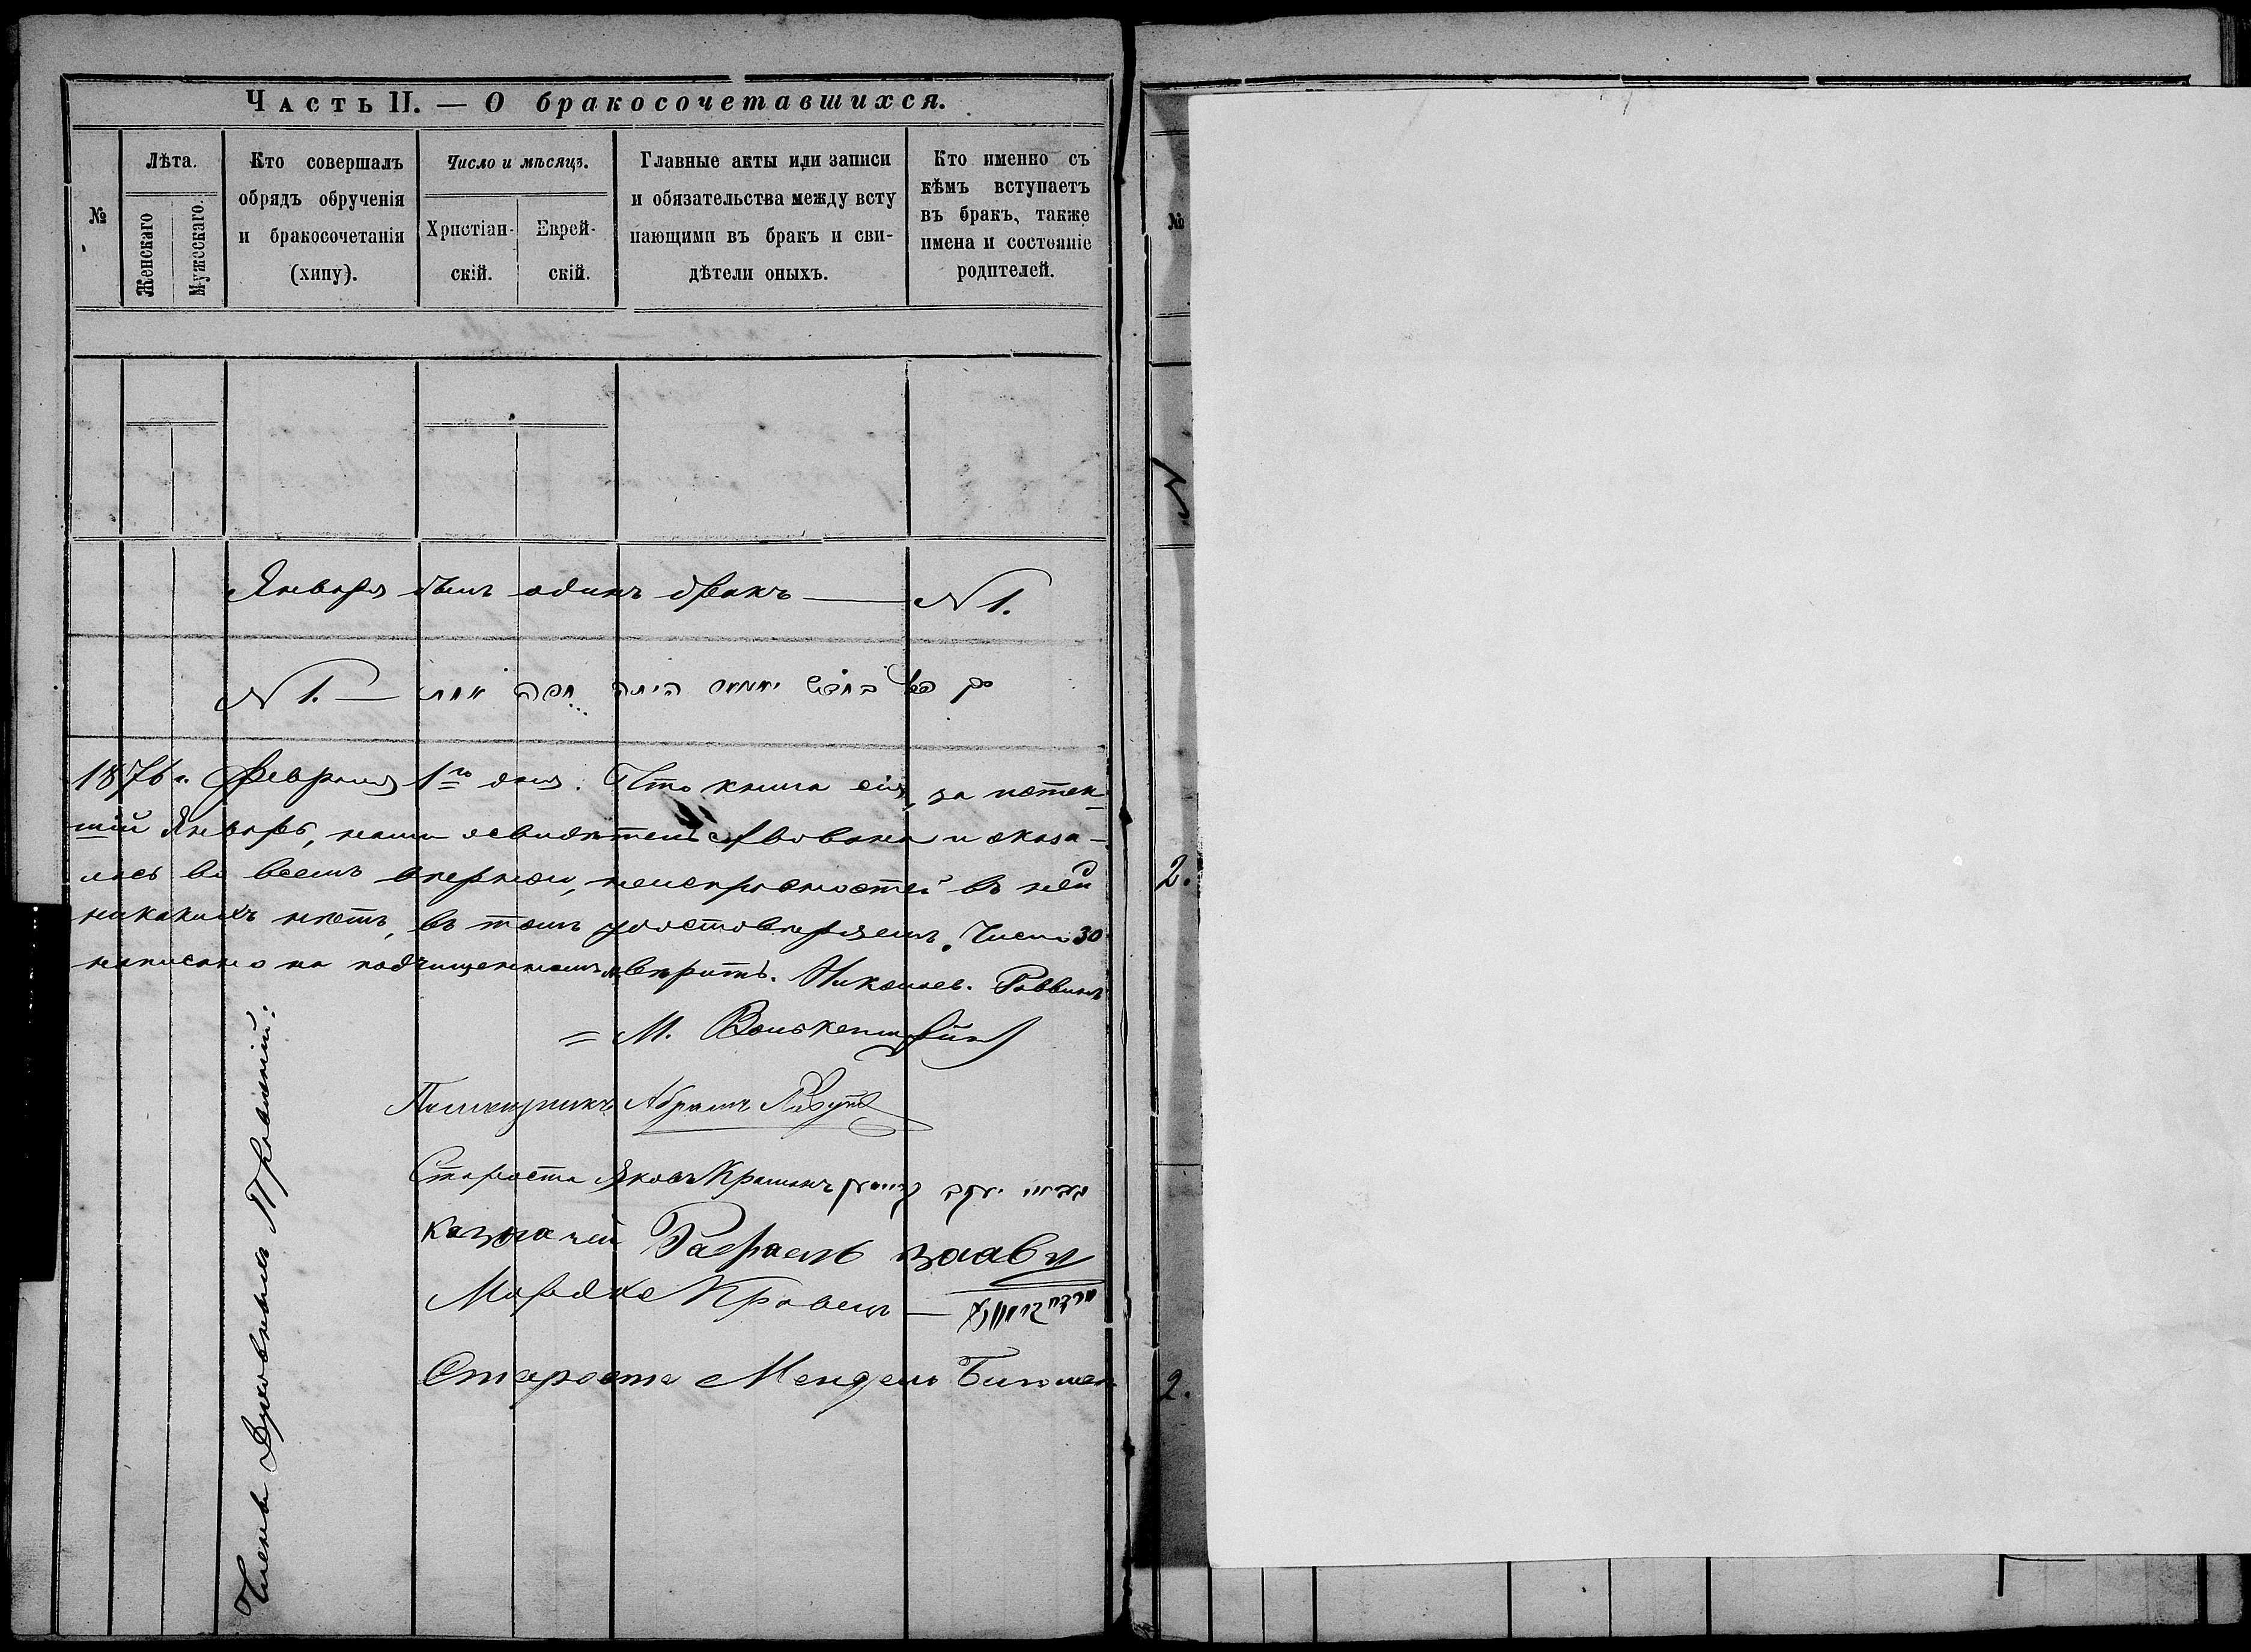 Часть II. — О бракосочетавшихся.
№
Лѣта.
Женскаго
Мужескаго.
Кто совершалъ
обрядъ обрученія
и бракосочетанія
(хипу).
Число и мѣсяцъ.
Христіан-
скій.
Еврей-
скій.
Главные акты или записи
и обязательства между всту
пающими въ бракъ и сви-
дѣтели оныхъ.
Кто именно съ
кѣмъ вступаетъ
въ бракъ, также
имена и состояніе
родителей.
Января былъ одинъ бракъ — N 1.
N 1. —
1876 г. Февраля 1го дня. Что книга сія, за истек-
шій Январь, нами освидѣтельствована и оказа-
лась во всемъ вѣрною, неисправностей въ ней
никакихъ нѣтъ, въ томъ удостовѣряемъ. Число 30
написано на подчищенномъ вѣрить. Николаев. Раввинъ
= М. Волькенштейнъ
Абрамъ
Староста Яковъ
Казначей Рафаель
Мордко Кравецъ —
Староста Мендель
Члены Духовнаго Правленія:
№
2.
2.